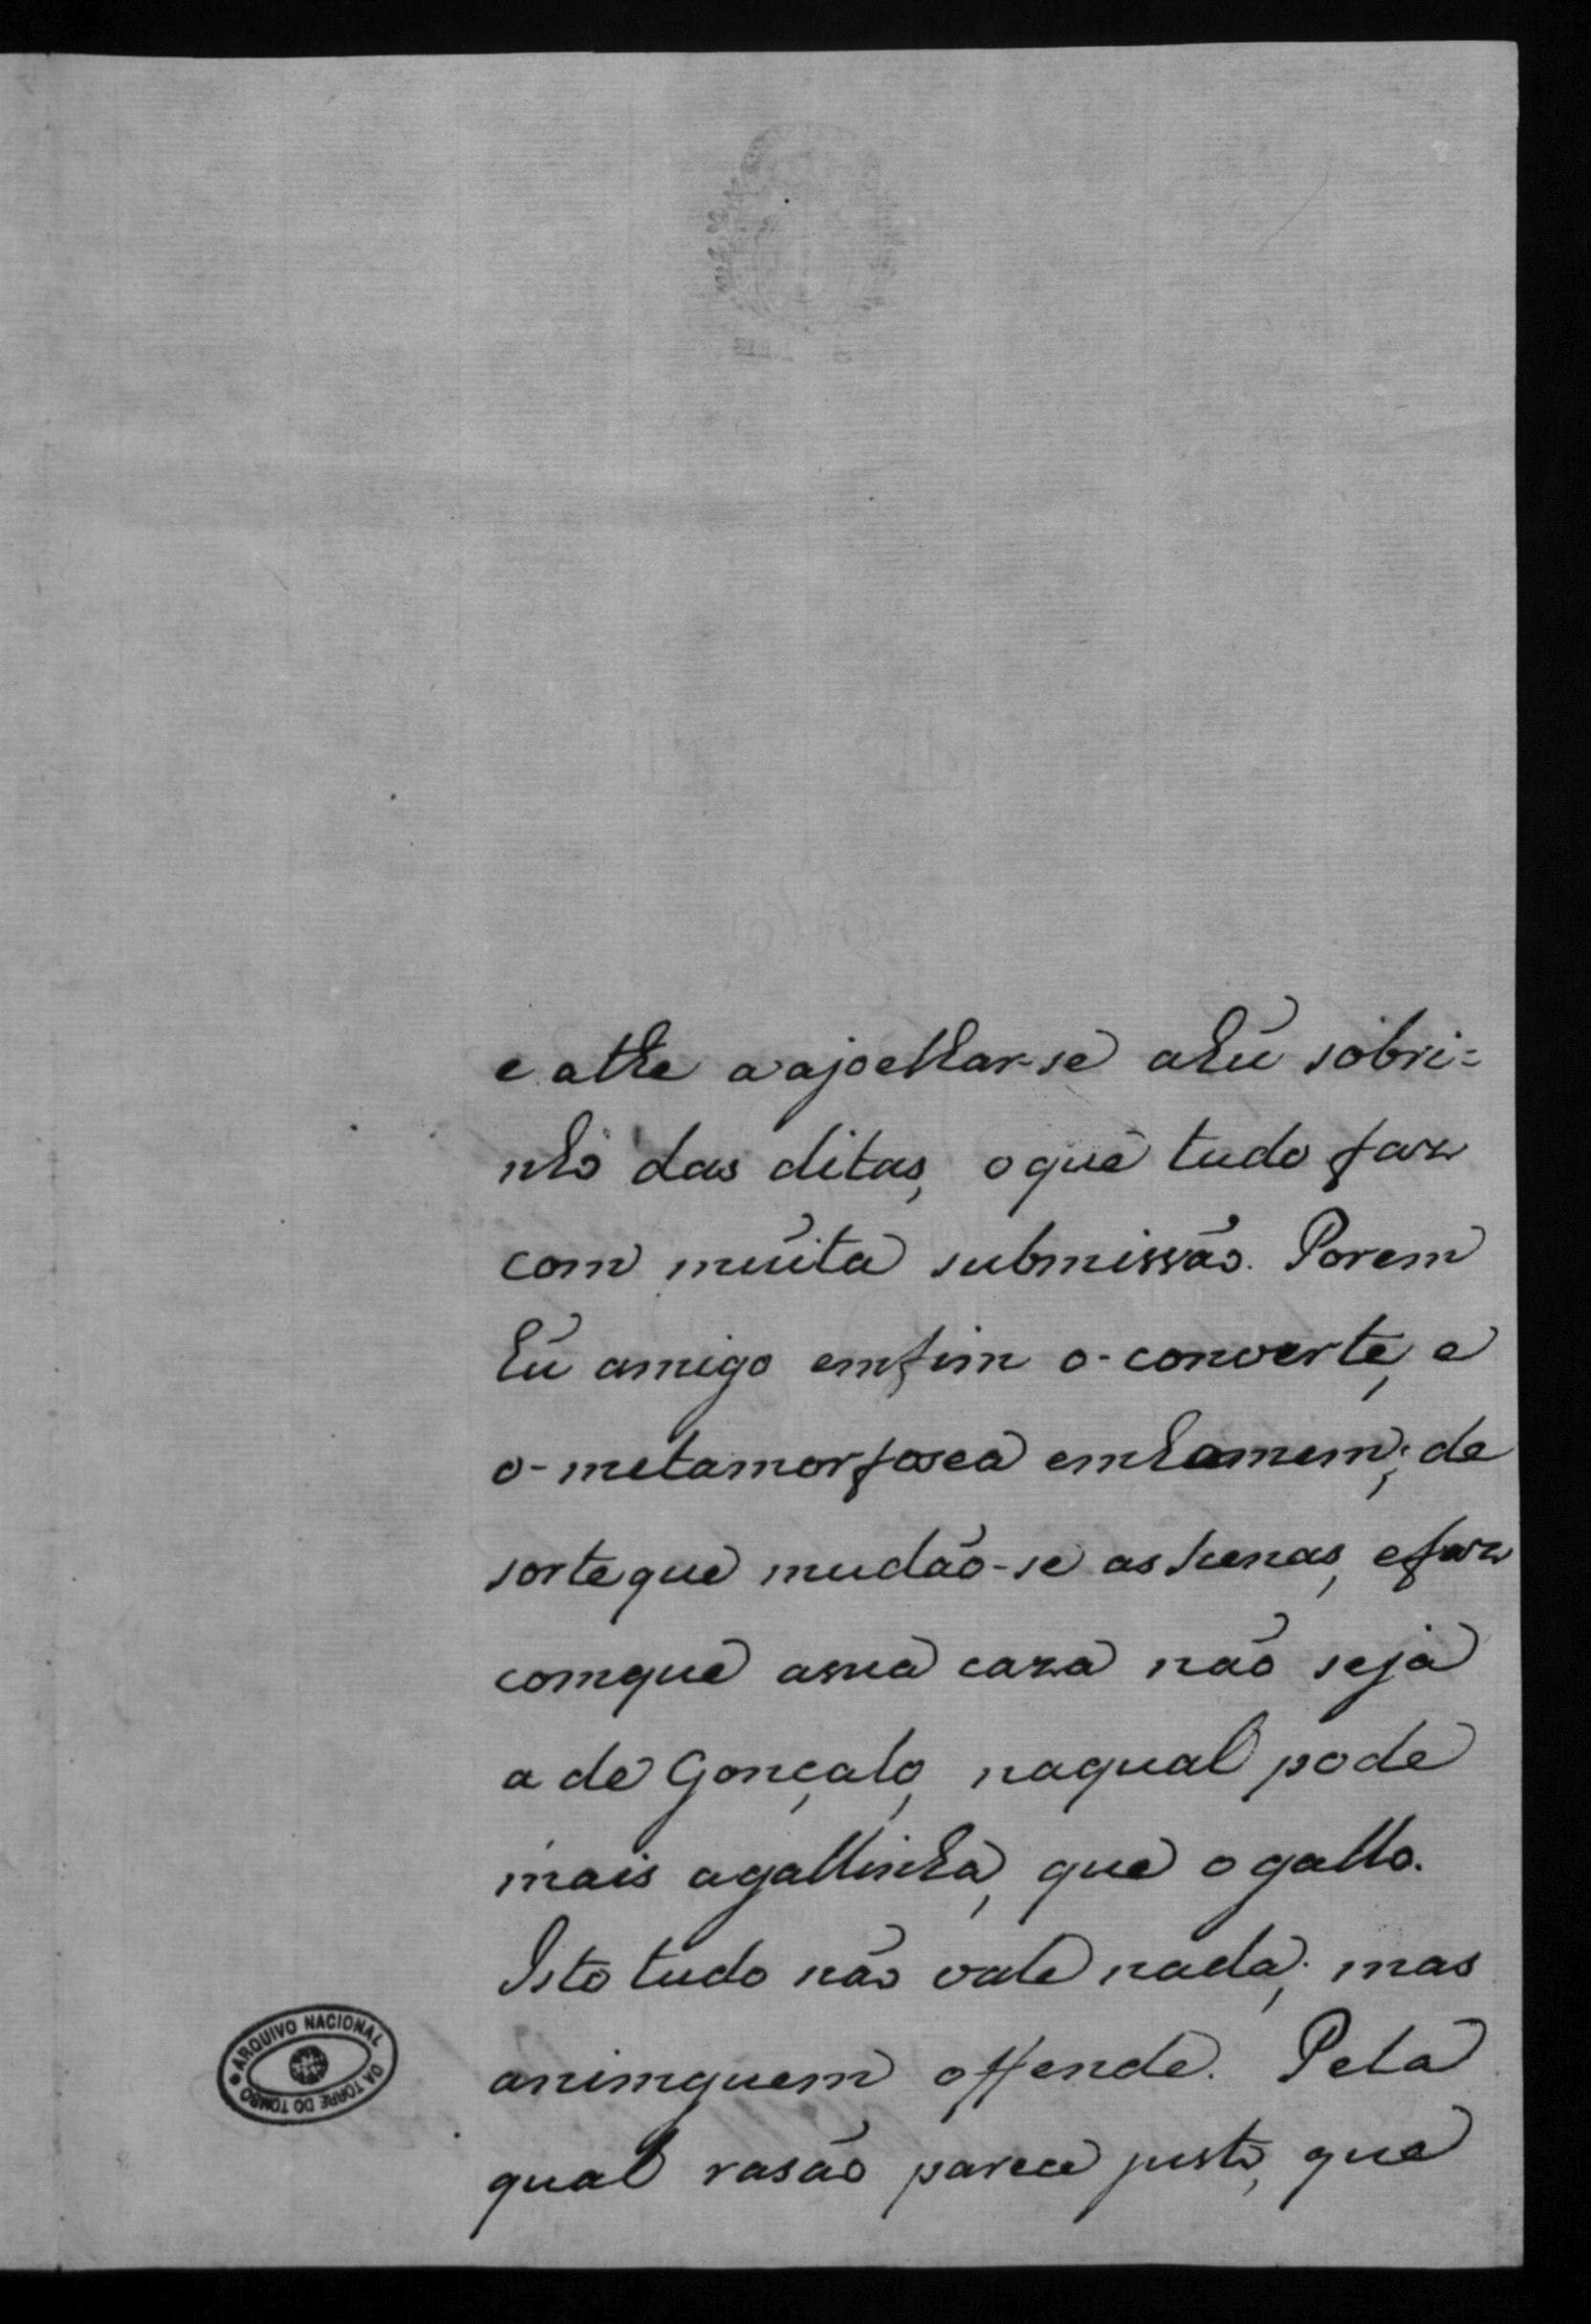 e athe a ajoelhar-se a hũ sobri=
nho das ditas, o que tudo faz
com muita submissão. Porem
hũ amigo emfim o-converte, e
o-metamorfosea em homem; de
sorte que mudão-se as scenas, e faz
com que a sua caza não seja
a de Gonçalo, na qual pode
mais a gallinha, que o gallo.
Isto tudo não vale nada; mas
a nimguem offende. Pela
qual rasão parece justo, que
ARQUIVO NACIONAL DA TORRE DO TOMBO